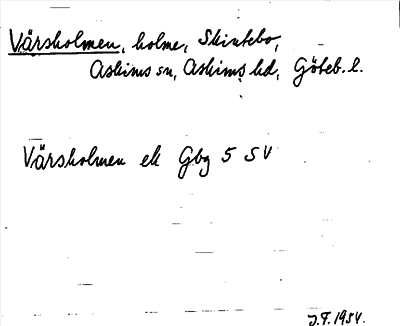 Vårsholmen, holme, Skintebo,
Askims sn, Askims hd, Göteb. l.
Vårsholmen ek Gbg 5 SV
J.F. 1954.